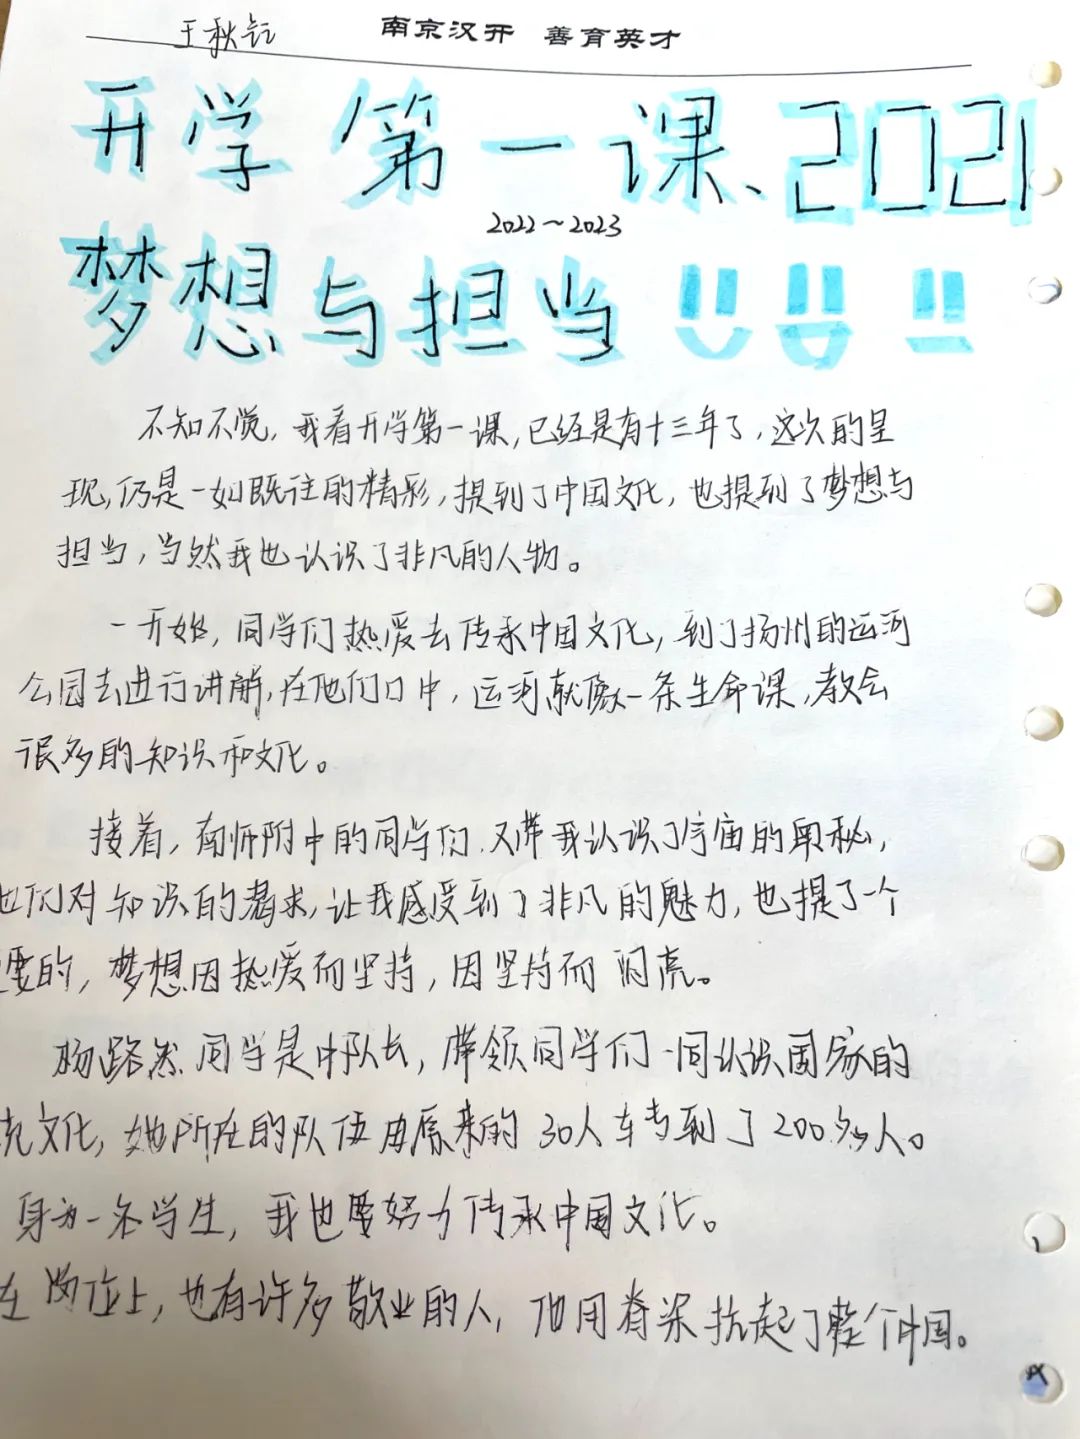 王秋
南京汉开 善育英才
开学第一课、2021
2022～2023
梦想与担当
不知不觉，我看开学第一课，已经是有十三年了，这次的呈
现，仍是一如既往的精彩，提到了中国文化，也提到了梦想与
担当，当然我也认识了非凡的人物。
一开始，同学们热爱去传承中国文化，到了扬州的运河
公园去进行讲解，在他们口中，运河就像一条生命课，教会
很多的知识和文化。
接着，南师附中的同学们，又带我认识了宇宙的奥秘，
他们对知识的需求，让我感受到了非凡的魅力，也提了一个
要的，梦想因热爱而坚持，因坚持而闪亮。
杨路然同学是中队长，带领同学们一同认识国家的
统文化，她所在的队伍由原来的30人车专到了200多人。
身为一名学生，我也要努力传承中国文化。
在岗位上，也有许多敬业的人，他用脊梁抗起了整个中国。